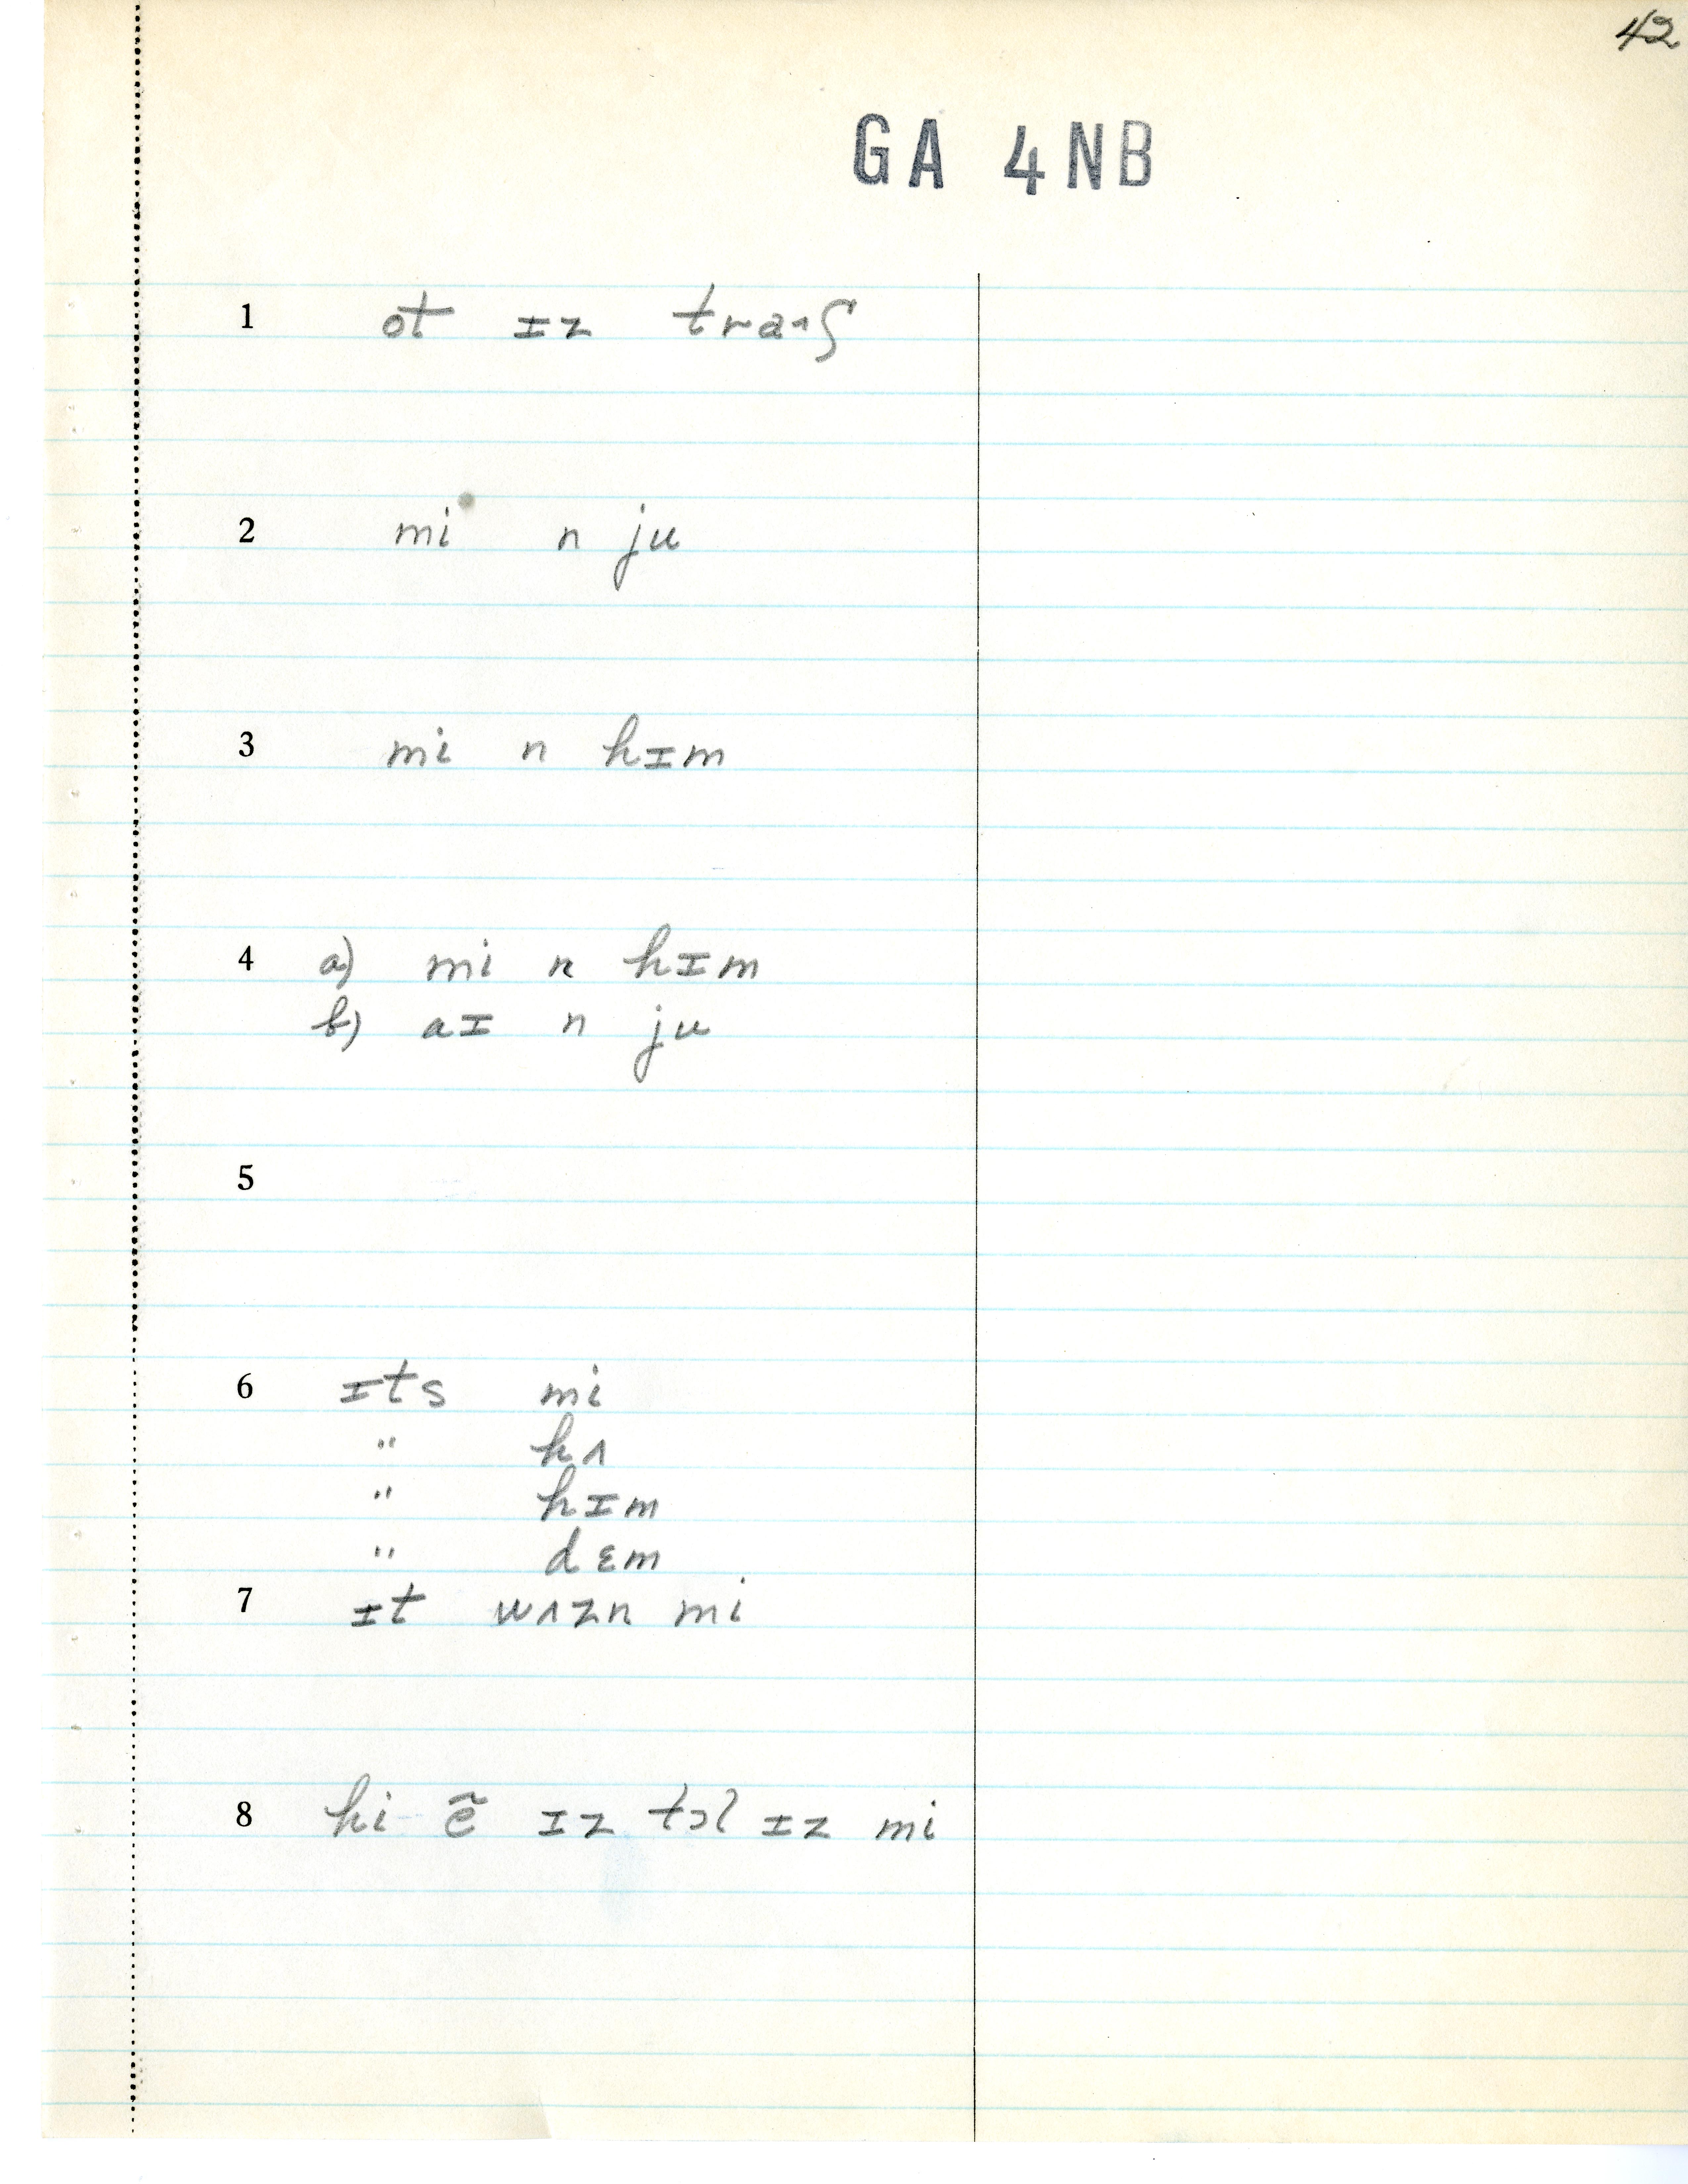 42
GA 4NB
1 ot ɪz traɪʃ
2 mi n ju
3 mi n hɪm
4 a) mi n hɪm
b) aɪ n ju
5
6 ɪts mi
" hʌ
" hɪm
" dɛm
7 ɪt wʌzn mi
8 hi ẽ ɪz tɔl ɪz mi